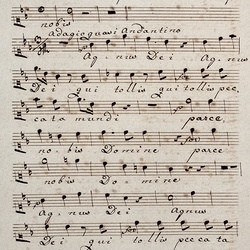 nobis
Adagio quasi Andantino
Ag- nus Dei Ag- nus
Dei qui tollis qui tollis pec-
cata mundi parce
no- bis Domine parce
nobis Do- mine
Ag- nus Dei Agnus
Dei qui tollis peccata